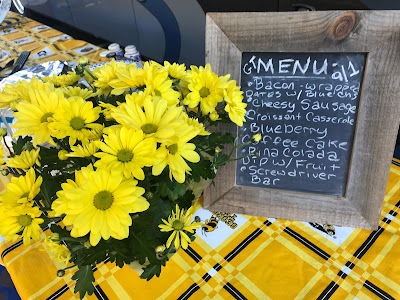 MENU
Bacon-wrapped
Dates w/ Blue Ch
Cheesy Sausage
Croissant Casserole
Blueberry
Coffee Cake
Pina Colada
Dip w/ Fruit
Screwdriver
Bar